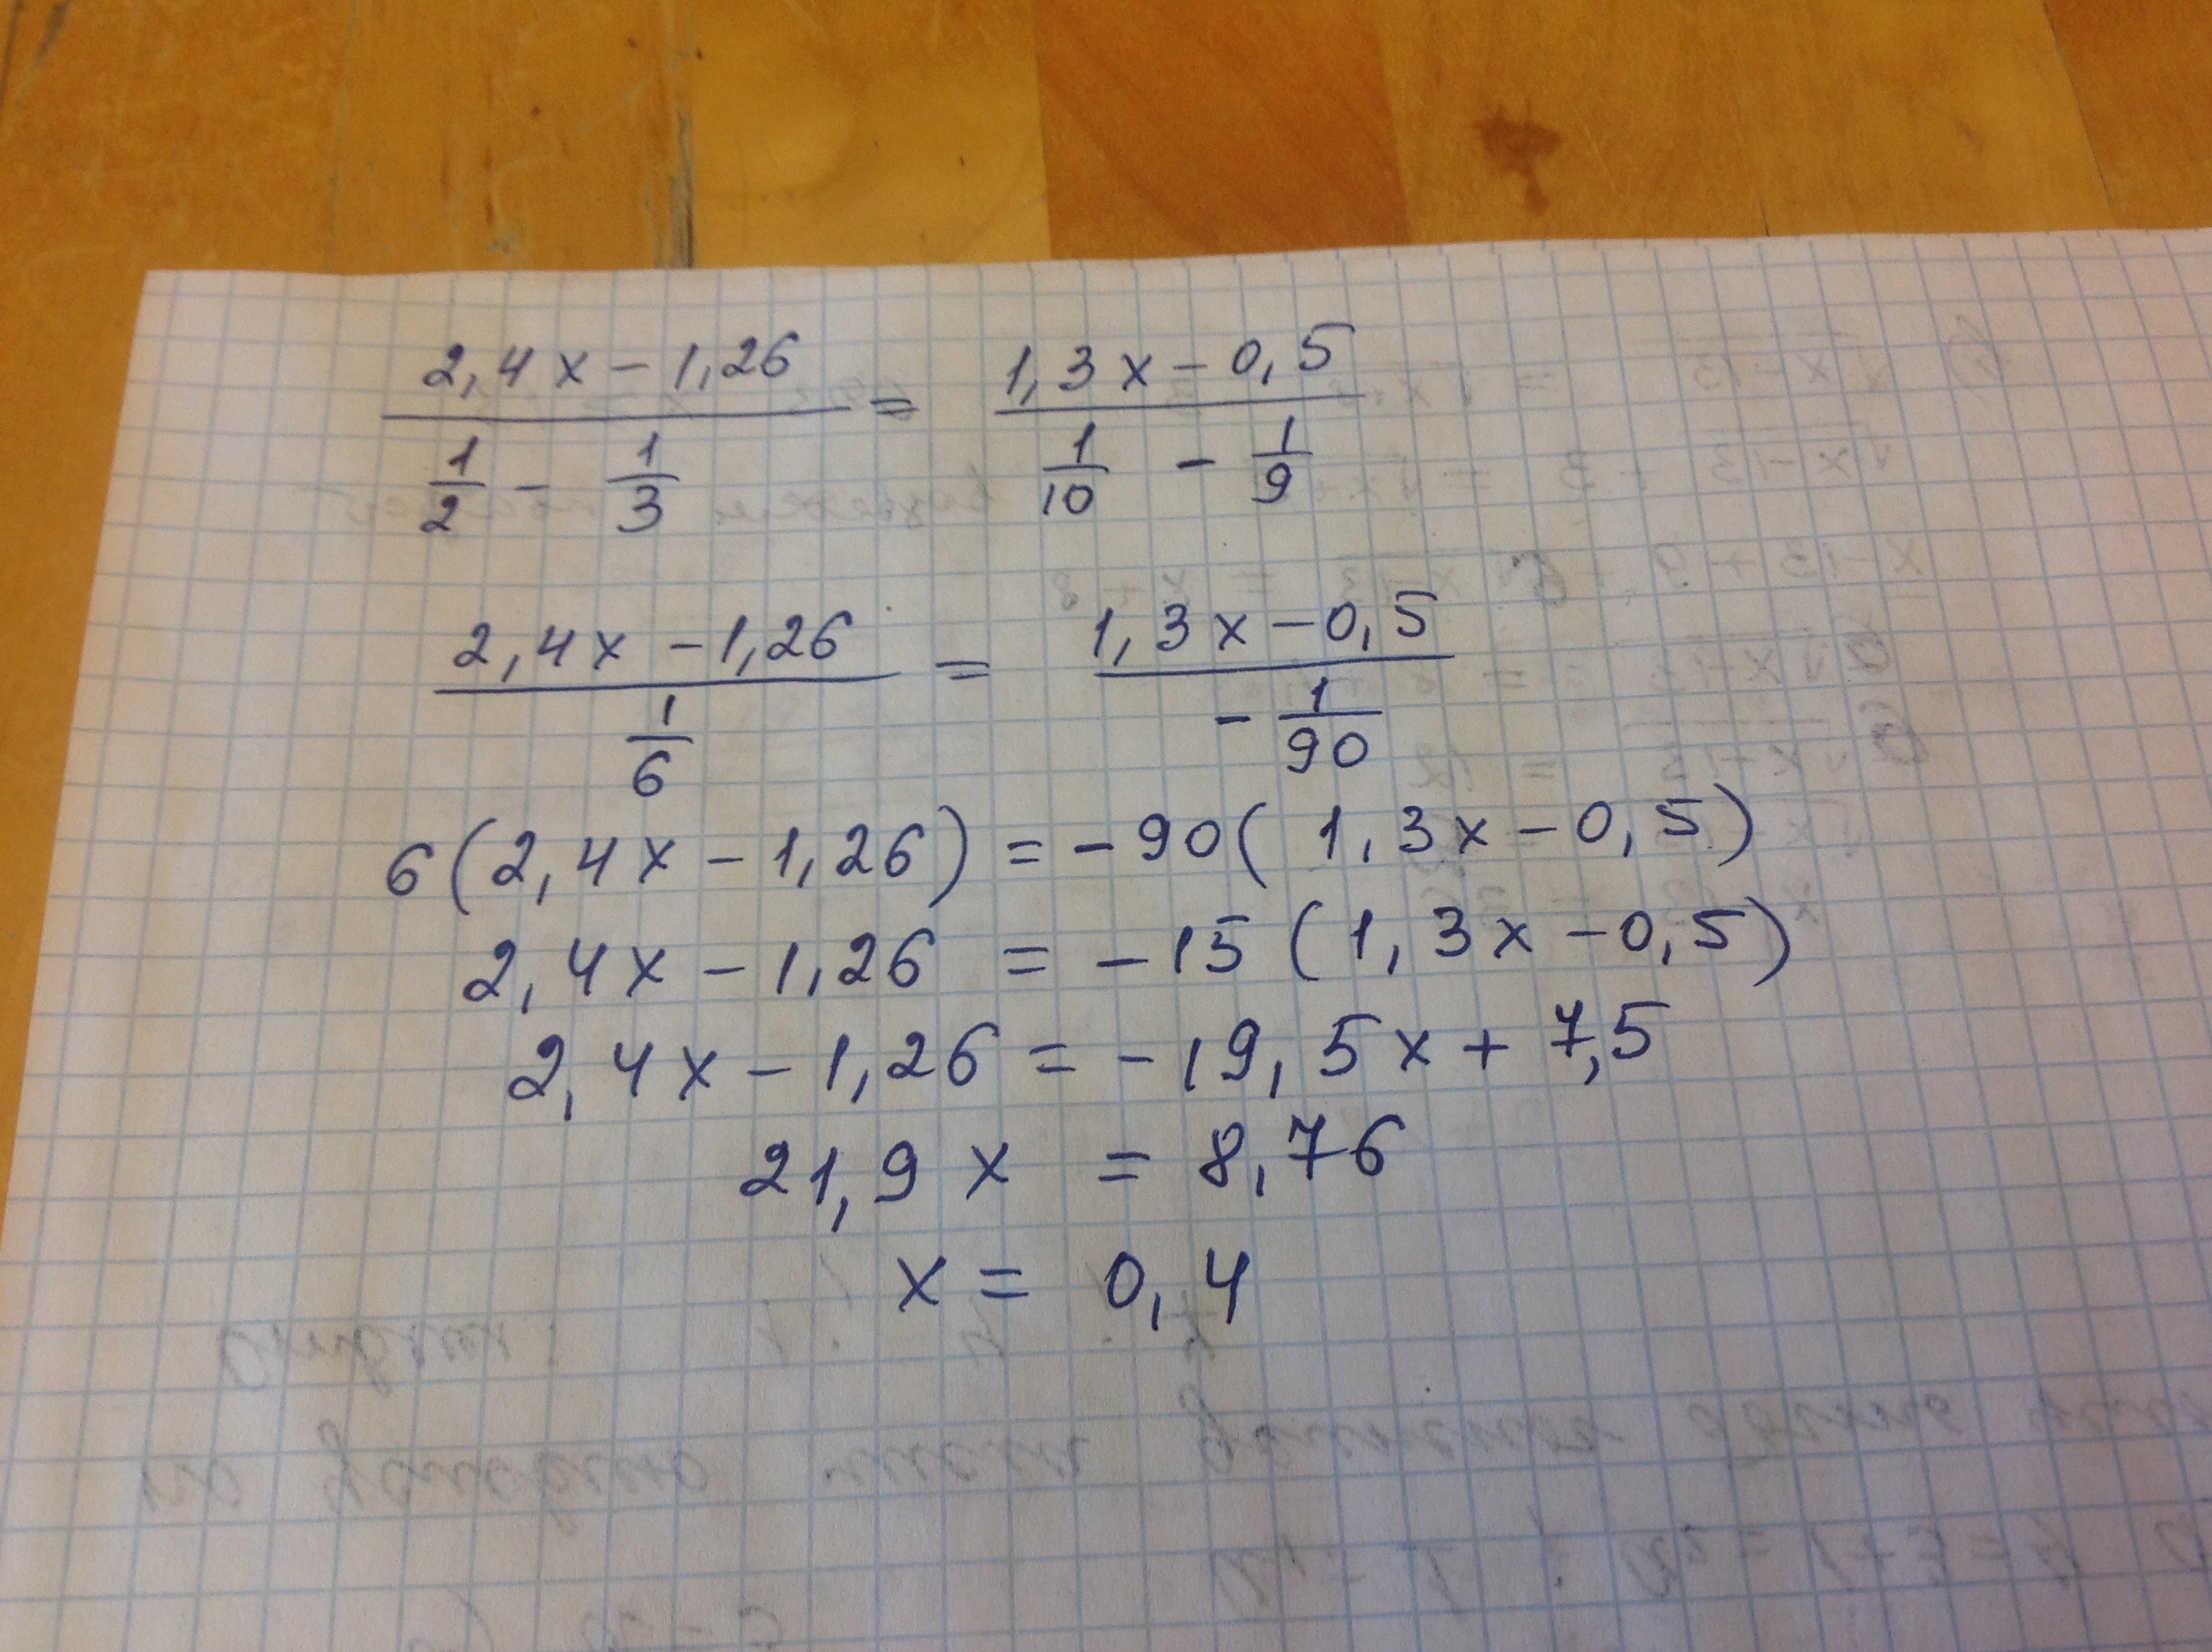 (2,4x - 1,26)/(1/2 - 1/3) = (1,3x - 0,5)/(1/10 - 1/9)
(2,4x - 1,26)/(1/6) = (1,3x - 0,5)/(- 1/90)
6(2,4x - 1,26) = -90(1,3x - 0,5)
2,4x - 1,26 = -15(1,3x - 0,5)
2,4x - 1,26 = -19,5x + 7,5
21,9x = 8,76
x = 0,4